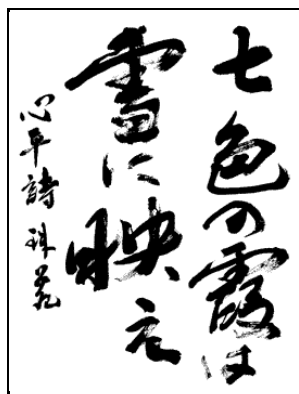 七色の霞は
雪に映え
心平詩